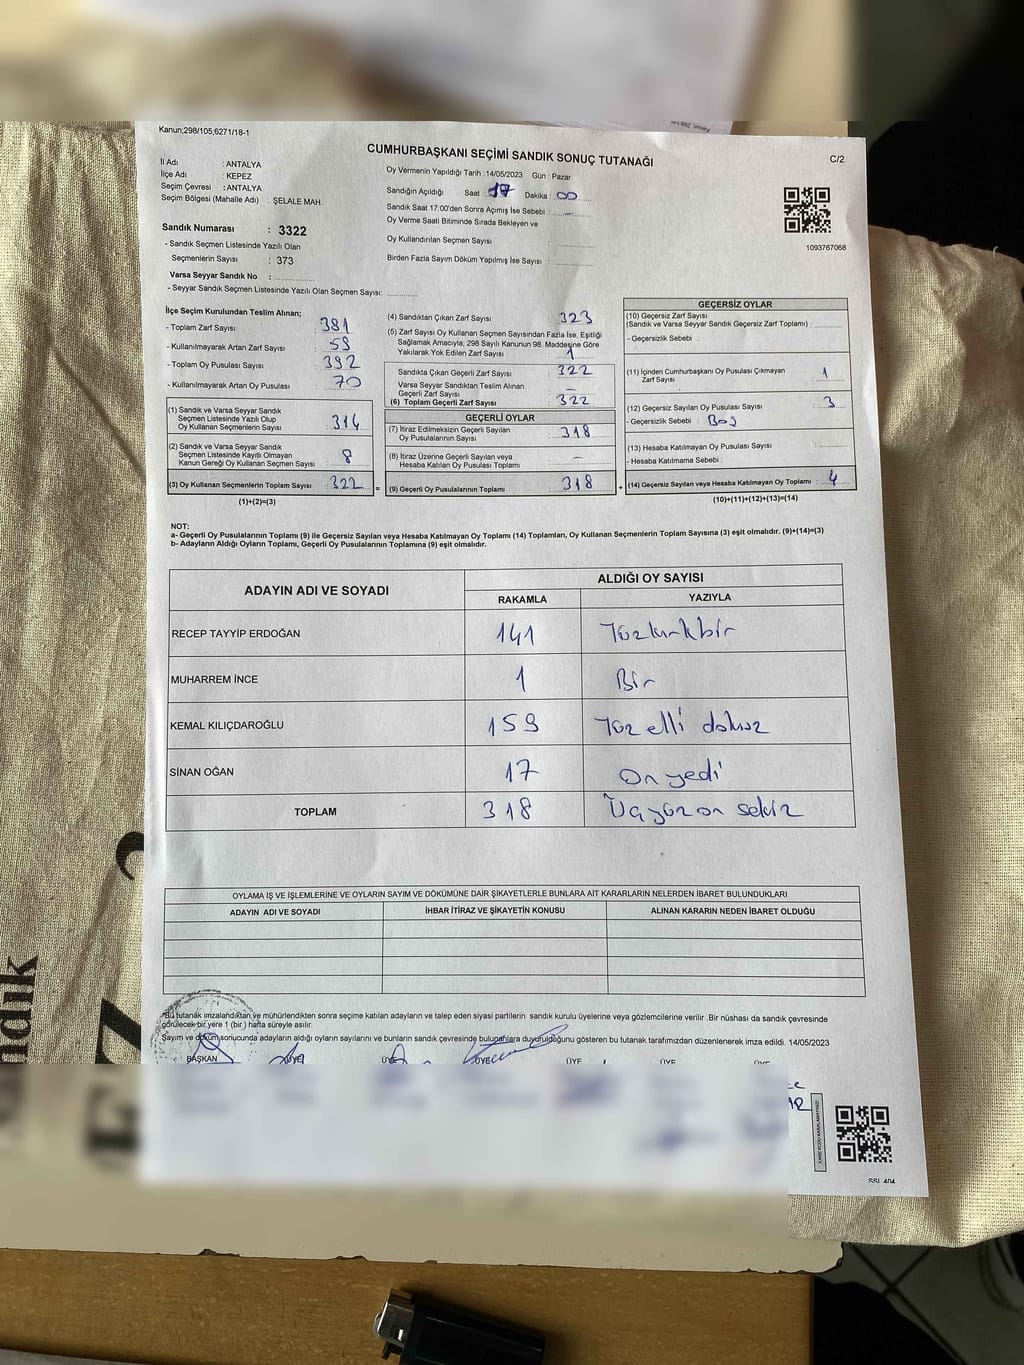 Kanun;298/105,6271/18-1
CUMHURBAŞKANI SEÇİMİ SANDIK SONUÇ TUTANAĞI
C/2
İl Adı : ANTALYA
İlçe Adı : KEPEZ
Seçim Çevresi : ANTALYA
Seçim Bölgesi (Mahalle Adı) : ŞELALE MAH.
Oy Vermenin Yapıldığı Tarih : 14/05/2023 Gün : Pazar
Sandığın Açıldığı Saat : 17 Dakika : 00
Sandık Saat 17:00'den Sonra Açımış İse Sebebi :
Oy Verme Saati Bitiminde Sırada Bekleyen ve
Oy Kullandırılan Seçmen Sayısı :
Birden Fazla Sayım Döküm Yapılmış İse Sayısı :
1093767068
Sandık Numarası : 3322
- Sandık Seçmen Listesinde Yazılı Olan
Seçmenlerin Sayısı : 373
Varsa Seyyar Sandık No :
- Seyyar Sandık Seçmen Listesinde Yazılı Olan Seçmen Sayısı:
İlçe Seçim Kurulundan Teslim Alınan;
- Toplam Zarf Sayısı : 381
- Kullanılmayarak Artan Zarf Sayısı : 59
- Toplam Oy Pusulası Sayısı : 392
- Kullanılmayarak Artan Oy Pusulası : 70
(1) Sandık ve Varsa Seyyar Sandık
Seçmen Listesinde Yazılı Olup
Oy Kullanan Seçmenlerin Sayısı : 314
(2) Sandık ve Varsa Seyyar Sandık
Seçmen Listesinde Kayıtlı Olmayan
Kanun Gereği Oy Kullanan Seçmen Sayısı : 8
(3) Oy Kullanan Seçmenlerin Toplam Sayısı : 322
(1)+(2)=(3)
(4) Sandıktan Çıkan Zarf Sayısı : 323
(5) Zarf Sayısı Oy Kullanan Seçmen Sayısından Fazla İse, Eşitliği
Sağlamak Amacıyla; 298 Sayılı Kanunun 98. Maddesine Göre
Yakılarak Yok Edilen Zarf Sayısı : 1
Sandıkta Çıkan Geçerli Zarf Sayısı : 322
Varsa Seyyar Sandıktan Teslim Alınan
Geçerli Zarf Sayısı : –
(6) Toplam Geçerli Zarf Sayısı : 322
GEÇERLİ OYLAR
(7) İtiraz Edilmeksizin Geçerli Sayılan
Oy Pusulalarının Sayısı : 318
(8) İtiraz Üzerine Geçerli Sayılan veya
Hesaba Katılan Oy Pusulası Toplamı : –
= (9) Geçerli Oy Pusulalarının Toplamı : 318
GEÇERSİZ OYLAR
(10) Geçersiz Zarf Sayısı
(Sandık ve Varsa Seyyar Sandık Geçersiz Zarf Toplamı) :
- Geçersizlik Sebebi :
(11) İçinden Cumhurbaşkanı Oy Pusulası Çıkmayan
Zarf Sayısı : 1
(12) Geçersiz Sayılan Oy Pusulası Sayısı : 3
- Geçersizlik Sebebi : Boş
(13) Hesaba Katılmayan Oy Pusulası Sayısı :
- Hesaba Katılmama Sebebi :
+ (14) Geçersiz Sayılan veya Hesaba Katılmayan Oy Toplamı : 4
(10)+(11)+(12)+(13)=(14)
NOT:
a- Geçerli Oy Pusulalarının Toplamı (9) ile Geçersiz Sayılan veya Hesaba Katılmayan Oy Toplamı (14) Toplamları, Oy Kullanan Seçmenlerin Toplam Sayısına (3) eşit olmalıdır. (9)+(14)=(3)
b- Adayların Aldığı Oyların Toplamı, Geçerli Oy Pusulalarının Toplamına (9) eşit olmalıdır.
ADAYIN ADI VE SOYADI
ALDIĞI OY SAYISI
RAKAMLA YAZIYLA
RECEP TAYYİP ERDOĞAN 141 Yüzkırkbir
MUHARREM İNCE 1 Bir
KEMAL KILIÇDAROĞLU 159 Yüz elli dokuz
SİNAN OĞAN 17 On yedi
TOPLAM 318 Üçyüz on sekiz
OYLAMA İŞ VE İŞLEMLERİNE VE OYLARIN SAYIM VE DÖKÜMÜNE DAİR ŞİKAYETLERLE BUNLARA AİT KARARLARIN NELERDEN İBARET BULUNDUKLARI
ADAYIN ADI VE SOYADI İHBAR İTİRAZ VE ŞİKAYETİN KONUSU ALINAN KARARIN NEDEN İBARET OLDUĞU
*Bu tutanak imzalandıktan ve mühürlendikten sonra seçime katılan adayların ve talep eden siyasi partilerin sandık kurulu üyelerine veya gözlemcilerine verilir .Bir nüshası da sandık çevresinde
görülecek bir yere 1 (bir) hafta süreyle asılır.
Sayım ve döküm sonucunda adayların aldığı oyların sayılarını ve bunların sandık çevresinde bulunanlara duyurulduğunu gösteren bu tutanak tarafımızdan düzenlenerek imza edildi. 14/05/2023
BAŞKAN ÜYE ÜYE ÜYE ÜYE ÜYE ÜYE